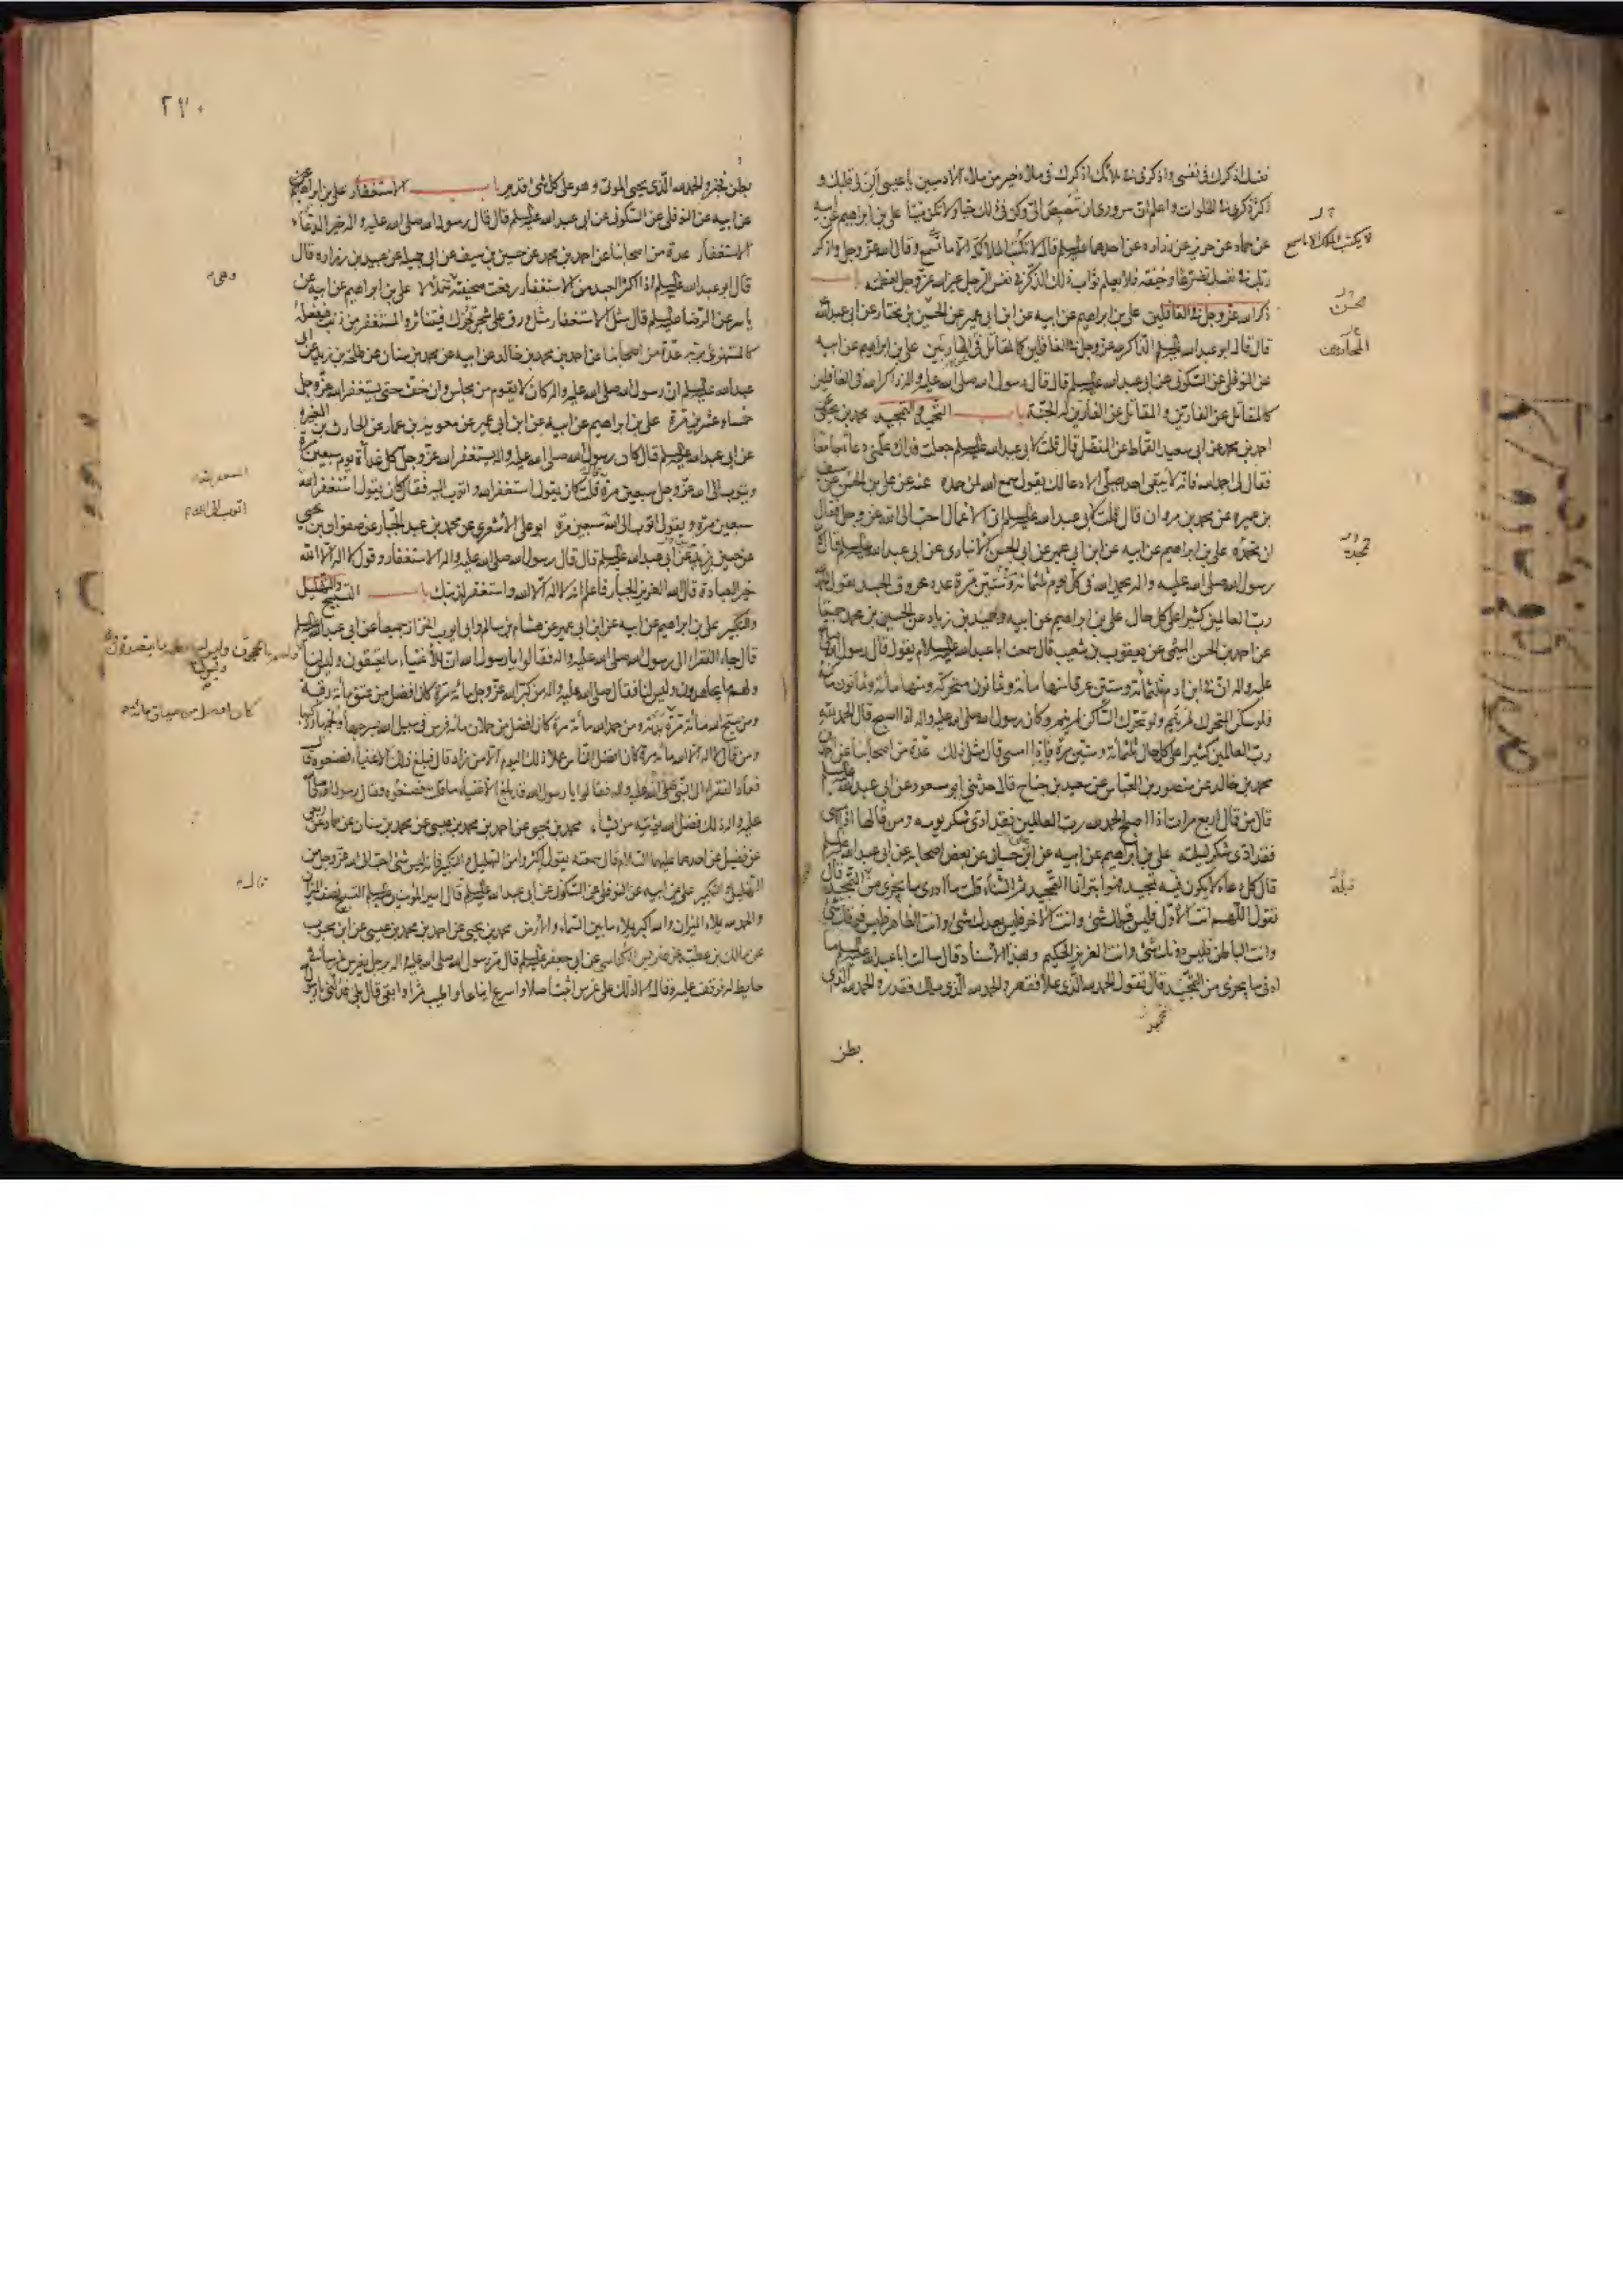 نفسك اذكرك فى نفسى واذكرنى فى ملائك اذكرك فى ملاء خير من ملاء الادميين يا عيسى ألن لى قلبك و
اكثر ذكرى فى الخلوات واعلم ان سرورى ان تبصبص الىّ وكن فى ذلك حيا ولا تكن ميتا على بن ابراهيم عن ابيه
عن حماد عن حريز عن زراره عن احدهما عليه السلم قال لا تكتب الملائكة الا ما تسمع وقال الله عز وجل واذكر
ربك فى نفسك تضرعا وخيفة فلا يعلم ثواب ذلك الذكر فى نفس الرجل غير الله عز وجل لعظمته باب
ذكر الله عز وجل فى الغافلين على بن ابراهيم عن ابيه عن ابن ابى عمير عن الحسين بن مختار عن ابى عبدالله
قال قال ابو عبدالله عليه السلم الذاكر لله عز وجل فى الغافلين كالمقاتل فى المحاربين على بن ابراهيم عن ابيه
عن النوفلى عن السكونى عن ابى عبدالله عليه السلم قال قال رسول الله صلى الله عليه واله ذاكر الله فى الغافلين
كالمقاتل عن الفارين والمقاتل عن الفارين له الجنة باب التحميد والتمجيد محمد بن يحيى عن
احمد بن محمد عن ابى سعيد القماط عن المفضل قال قلت لابى عبدالله عليه السلم جعلت فداك علمنى دعاء جامعا
فقال لى احمد الله فانه لا يبقى احد يصلى الا دعا لك يقول سمع الله لمن حمده عنه عن على بن الحسين عن سيف
بن عميره عن محمد بن مروان قال قلت لابى عبدالله عليه السلم اى الاعمال احب الى الله عز وجل فقال
ان تحمده على بن ابراهيم عن ابيه عن ابن ابى عمير عن ابى الحسن الانبارى عن ابى عبدالله عليه السلم قال كان
رسول الله صلى الله عليه واله يحمد الله فى كل يوم ثلثمائة وستين مرة عدد عروق الجسد يقول الحمد لله
رب العالمين كثيرا على كل حال على بن ابراهيم عن ابيه وحميد بن زياد عن الحسن بن محمد جميعا
عن احمد بن الحسن الميثمى عن يعقوب بن شعيب قال سمعت ابا عبدالله عليه السلام يقول قال رسول الله صلى الله
عليه واله ان فى ابن ادم ثلثمائة وستين عرقا منها مائة وثمانون متحركه ومنها مائة وثمانون ساكنة
فلو سكن المتحرك لم ينم ولو تحرك الساكن لم ينم وكان رسول الله صلى الله عليه واله اذا اصبح قال الحمد لله
رب العالمين كثيرا على كل حال ثلثمائة وستين مرة فاذا امسى قال مثل ذلك عدة من اصحابنا عن احمد بن
محمد بن خالد عن منصور بن العباس عن سعيد بن جناح قال حدثنى ابو مسعود عن ابى عبدالله عليه السلم
قال من قال اربع مرات اذا اصبح الحمد لله رب العالمين فقد ادى شكر يومه ومن قالها اذا امسى
فقد ادى شكر ليلته على بن ابراهيم عن ابيه عن ابن حسان عن بعض اصحابه عن ابى عبدالله عليه السلم
قال كل دعاء لا يكون قبله تمجيد فهو ابتر انما التمجيد ثم الثناء قلت ما ادرى ما يجزى من التمجيد قال
تقول اللهم انت الاول فليس قبلك شئ وانت الاخر فليس بعدك شئ وانت الظاهر فليس فوقك شئ
وانت الباطن فليس دونك شئ وانت العزيز الحكيم وبهذا الاسناد قال سالت ابا عبدالله عليه السلم ما
ادنى ما يجزى من التحميد قال تقول الحمد لله الذى علا فقهر والحمد لله الذى ملك فقدر والحمد لله الذى
بطن
لا يكتب الملك الا ما سمع
المحاربين
قبله
٢٧٠
بطن فخبر والحمد لله الذى يحيى الموتى وهو على كل شئ قدير باب الاستغفار على بن ابراهيم
عن ابيه عن النوفلى عن السكونى عن ابى عبدالله عليه السلم قال قال رسول الله صلى الله عليه واله خير الدعاء
الاستغفار عدة من اصحابنا عن احمد بن محمد عن حسين بن سيف عن ابى جميله عن عبيد بن زراره قال
قال ابو عبدالله عليه السلم اذا اكثر العبد من الاستغفار رفعت صحيفته تتلألأ على بن ابراهيم عن ابيه عن
ياسر عن الرضا عليه السلم قال مثل الاستغفار مثل ورق على شجرة تحرك فيتناثر والمستغفر من ذنب ويفعله
كالمستهزئ بربه عدة من اصحابنا عن احمد بن محمد بن خالد عن ابيه عن محمد بن سنان عن طلحة بن زيد عن ابى
عبدالله عليه السلم ان رسول الله صلى الله عليه واله كان لا يقوم من مجلس وان خف حتى يستغفر الله عز وجل
خمسا وعشرين مرة على بن ابراهيم عن ابيه عن ابن ابى عمير عن معوية بن عمار عن الحارث بن المغيره
عن ابى عبدالله عليه السلم قال كان رسول الله صلى الله عليه واله يستغفر الله عز وجل كل غداة يوم سبعين مرة
ويتوب الى الله عز وجل سبعين مرة قلت كان يقول استغفر الله واتوب اليه فقال كان يقول استغفر الله
سبعين مرة ويقول اتوب الى الله سبعين مرة ابو على الاشعرى عن محمد بن عبد الجبار عن صفوان بن يحيى
عن حسين بن زيد عن ابى عبدالله عليه السلم قال قال رسول الله صلى الله عليه واله الاستغفار وقول لا اله الا الله
خير العبادة قال الله العزيز الجبار فاعلم انه لا اله الا الله واستغفر لذنبك باب التسبيح والتهليل
والتكبير على بن ابراهيم عن ابيه عن ابن ابى عمير عن هشام بن سالم وابى ايوب الخزاز جميعا عن ابى عبدالله عليه السلم
قال جاء الفقراء الى رسول الله صلى الله عليه واله فقالوا يا رسول الله ان الاغنياء ما يعتقون وليس لنا
ولهم ما يجاهدون وليس لنا فقال صلى الله عليه واله من كبر الله عز وجل مائة مرة كان افضل من عتق مائة رقبة
ومن سبح الله مائة مرة ومن حمد الله مائة مرة كان افضل من حملان مائة فرس فى سبيل الله بسرجها ولجمها وركبها
ومن قال لا اله الا الله مائة مرة كان افضل الناس عملا ذلك اليوم الا من زاد قال فبلغ ذلك الاغنياء فصنعوه قال
فعاد الفقراء الى النبى صلى الله عليه واله فقالوا يا رسول الله قد بلغ الاغنياء ما قلت فصنعوه فقال رسول الله صلى الله
عليه واله ذلك فضل الله يؤتيه من يشاء محمد بن يحيى عن احمد بن محمد بن عيسى عن محمد بن سنان عن حماد عن ربعى
عن فضيل عن احدهما عليهما السلام قال سمعته يقول اكثروا من التهليل والتكبير فانه ليس شئ احب الى الله عز وجل من
التهليل والتكبير على عن ابيه عن النوفلى عن السكونى عن ابى عبدالله عليه السلم قال امير المؤمنين عليه السلم التسبيح نصف الميزان
والحمد لله يملاء الميزان والله اكبر يملاء ما بين السماء والارض محمد بن يحيى عن احمد بن محمد بن عيسى عن ابن محبوب
عن مالك بن عطية عن ضريس الكناسى عن ابى جعفر عليه السلم قال مر رسول الله صلى الله عليه واله برجل يغرس غرسا فى
حايط له فوقف عليه وقال الا ادلك على غرس اثبت اصلا واسرع ايناعا واطيب ثمرا وابقى قال بلى فدلنى يا رسول
اتوب الى الله